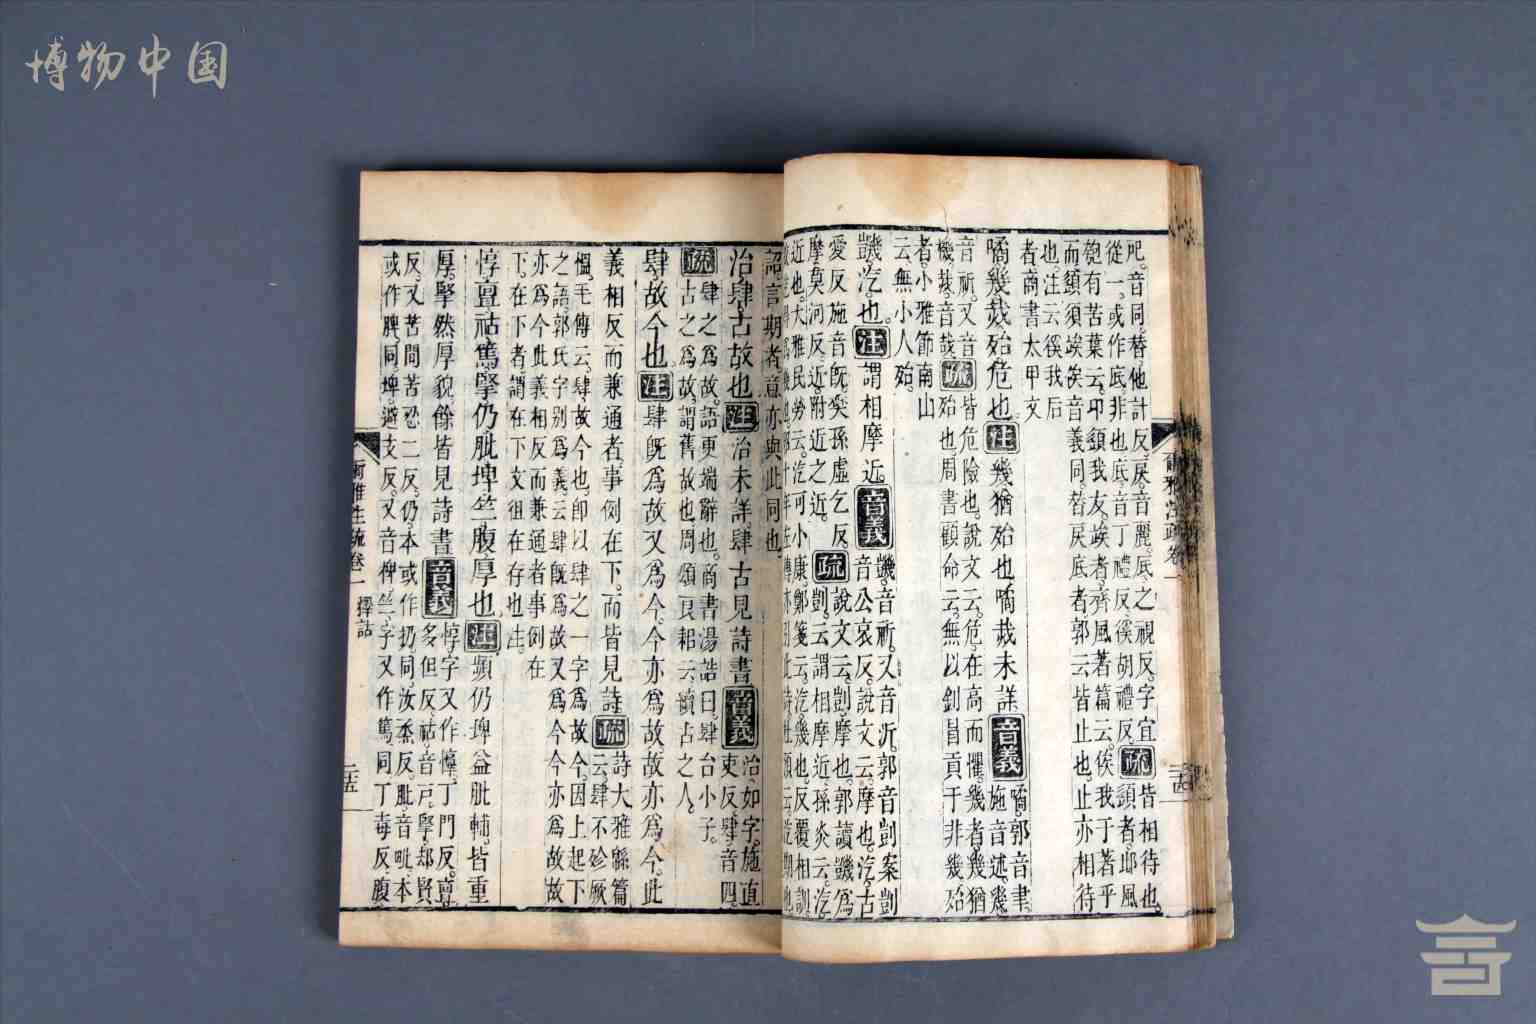 博物中国
咫音同替他計反戾音麗底之視反字宜疏皆相待也
從一或作底非也底音丁禮反徯胡禮反疏頾者邶風
匏有苦葉云卬須我友竢者齊風著篇云俟我于著乎
而頾須竢俟音義同替戾底者郭云皆止也止亦相待
也注云徯我后
者商書太甲文
噊幾烖殆危也注幾猶殆也噊烖未詳音義噊郭音聿
施音述幾
音祈又音
機烖音哉疏皆危險也說文云危在高而懼幾者幾猶
殆也周書顧命云無以釗冒貢于非幾殆
者小雅節南山
云無小人殆
譏汔也注謂相摩近音義譏音祈又音沂郭音剴案剴
音公哀反說文云摩也汔古
愛反施音旣樊孫虛乞反疏說文云剴摩也郭讀譏爲
剴云謂相摩近孫炎云汔
摩莫河反近附近之近
近也大雅民勞云汔可小康鄭箋云汔幾也反覆相訓
詔言期者意亦與此同也
治肆古故也注治未詳肆古見詩書音義治如字施直
吏反肆音四
疏肆之爲故語更端辭也商書湯誥曰肆台小子
古之爲故謂舊故也周頌良耜云續古之人
肆故今也注肆旣爲故又爲今今亦爲故故亦爲今此
義相反而兼通者事例在下而皆見詩疏詩大雅緜篇
云肆不殄厥
慍毛傳云肆故今也卽以肆之一字爲故今因上起下
之語郭氏字別爲義云肆旣爲故又爲今今亦爲故故
亦爲今此義相反而兼通者事例在
下在下者謂在下文徂在存也注
惇亶祜篤掔仍肶埤竺腹厚也注頻仍埤益肶輔皆重
厚掔然厚貌餘皆見詩書音義惇字又作㥫丁門反亶
多但反祜音戶掔却賢
反又苦間苦忍二反仍本或作扔同汝蒸反肶音毗本
或作膍同埤避支反又音裨竺字又作篤同丁毒反腹
爾雅注疏卷一
釋詁
二十五
爾雅注疏卷一